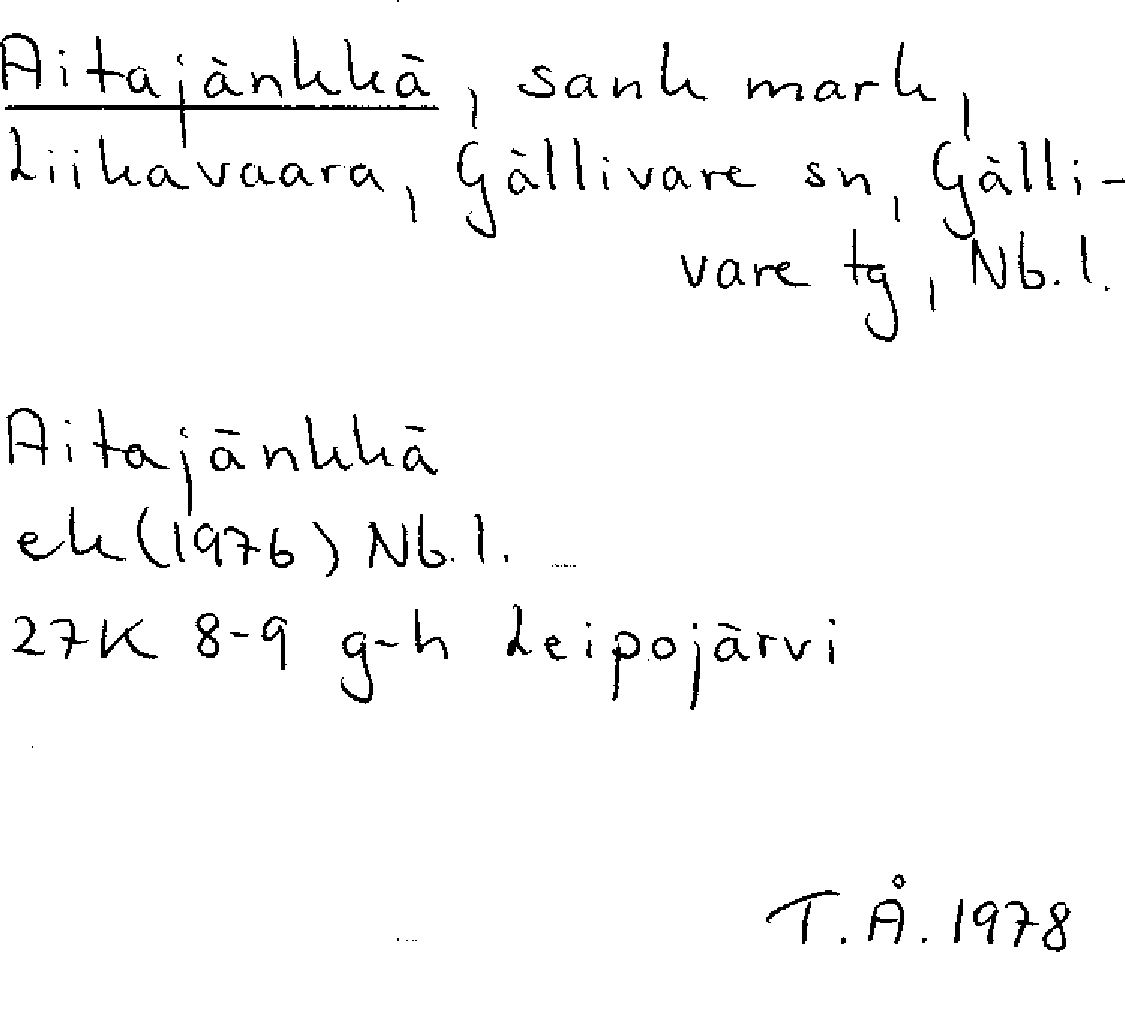 Aitajänkkä, sank mark,
Liikavaara, Gällivare sn, Gälli-
vare tg, Nb. l.
Aitajänkkä
ek (1976) Nb. l.
27K 8-9 g-h Leipojärvi
T. Å. 1978